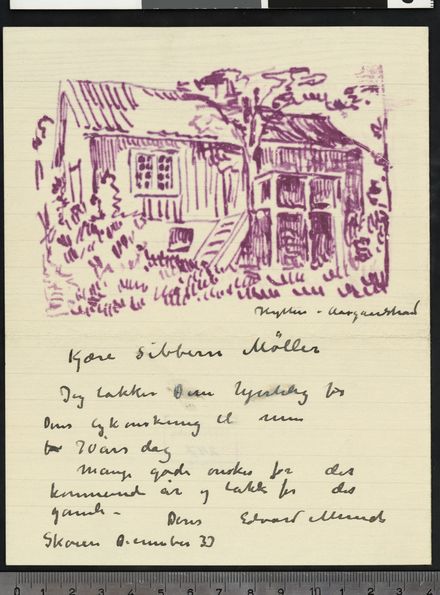 Hytten - Aasgaardstrand
Kjære Sibbern Møller
Jeg takker Dem hjertelig for
Deres Lykønskning til min
70 års dag
Mange gode ønsker for det
kommende år og takk for det
gamle -
Deres Edvard Munch
Skøien December 33
0 1 2 3 4 5 6 7 8 9 10 1 2 3 4